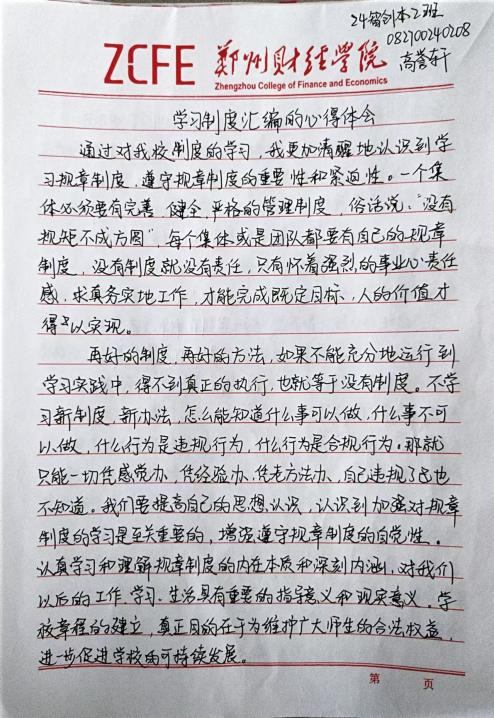 24智创本2班
082700240208
高誉轩
ZCFE 郑州财经学院
Zhengzhou College of Finance and Economics
学习制度汇编的心得体会
通过对我校制度的学习，我更加清醒地认识到学
习规章制度，遵守规章制度的重要性和紧迫性。一个集
体必须要有完善、健全、严格的管理制度，俗话说："没有
规矩不成方圆"，每个集体或是团队都要有自己的规章
制度，没有制度就没有责任，只有怀着强烈的事业心责任
感，求真务实地工作，才能完成既定目标，人的价值才
得以实现。
再好的制度，再好的方法，如果不能充分地运行到
学习实践中，得不到真正的执行，也就等于没有制度。不学
习新制度，新办法，怎么能知道什么事可以做，什么事不可
以做，什么行为是违规行为，什么行为是合规行为。那就
只能一切凭感觉办，凭经验办，凭老方法办，自己违规了也
不知道。我们要提高自己的思想认识，认识到加强对规章
制度的学习是至关重要的，增强遵守规章制度的自觉性。
认真学习和理解规章制度的内在本质和深刻内涵，对我们
以后的工作、学习、生活具有重要的指导意义和现实意义。学
校章程的建立，真正目的在于为维护广大师生的合法权益，
进一步促进学校的可持续发展。
第 页